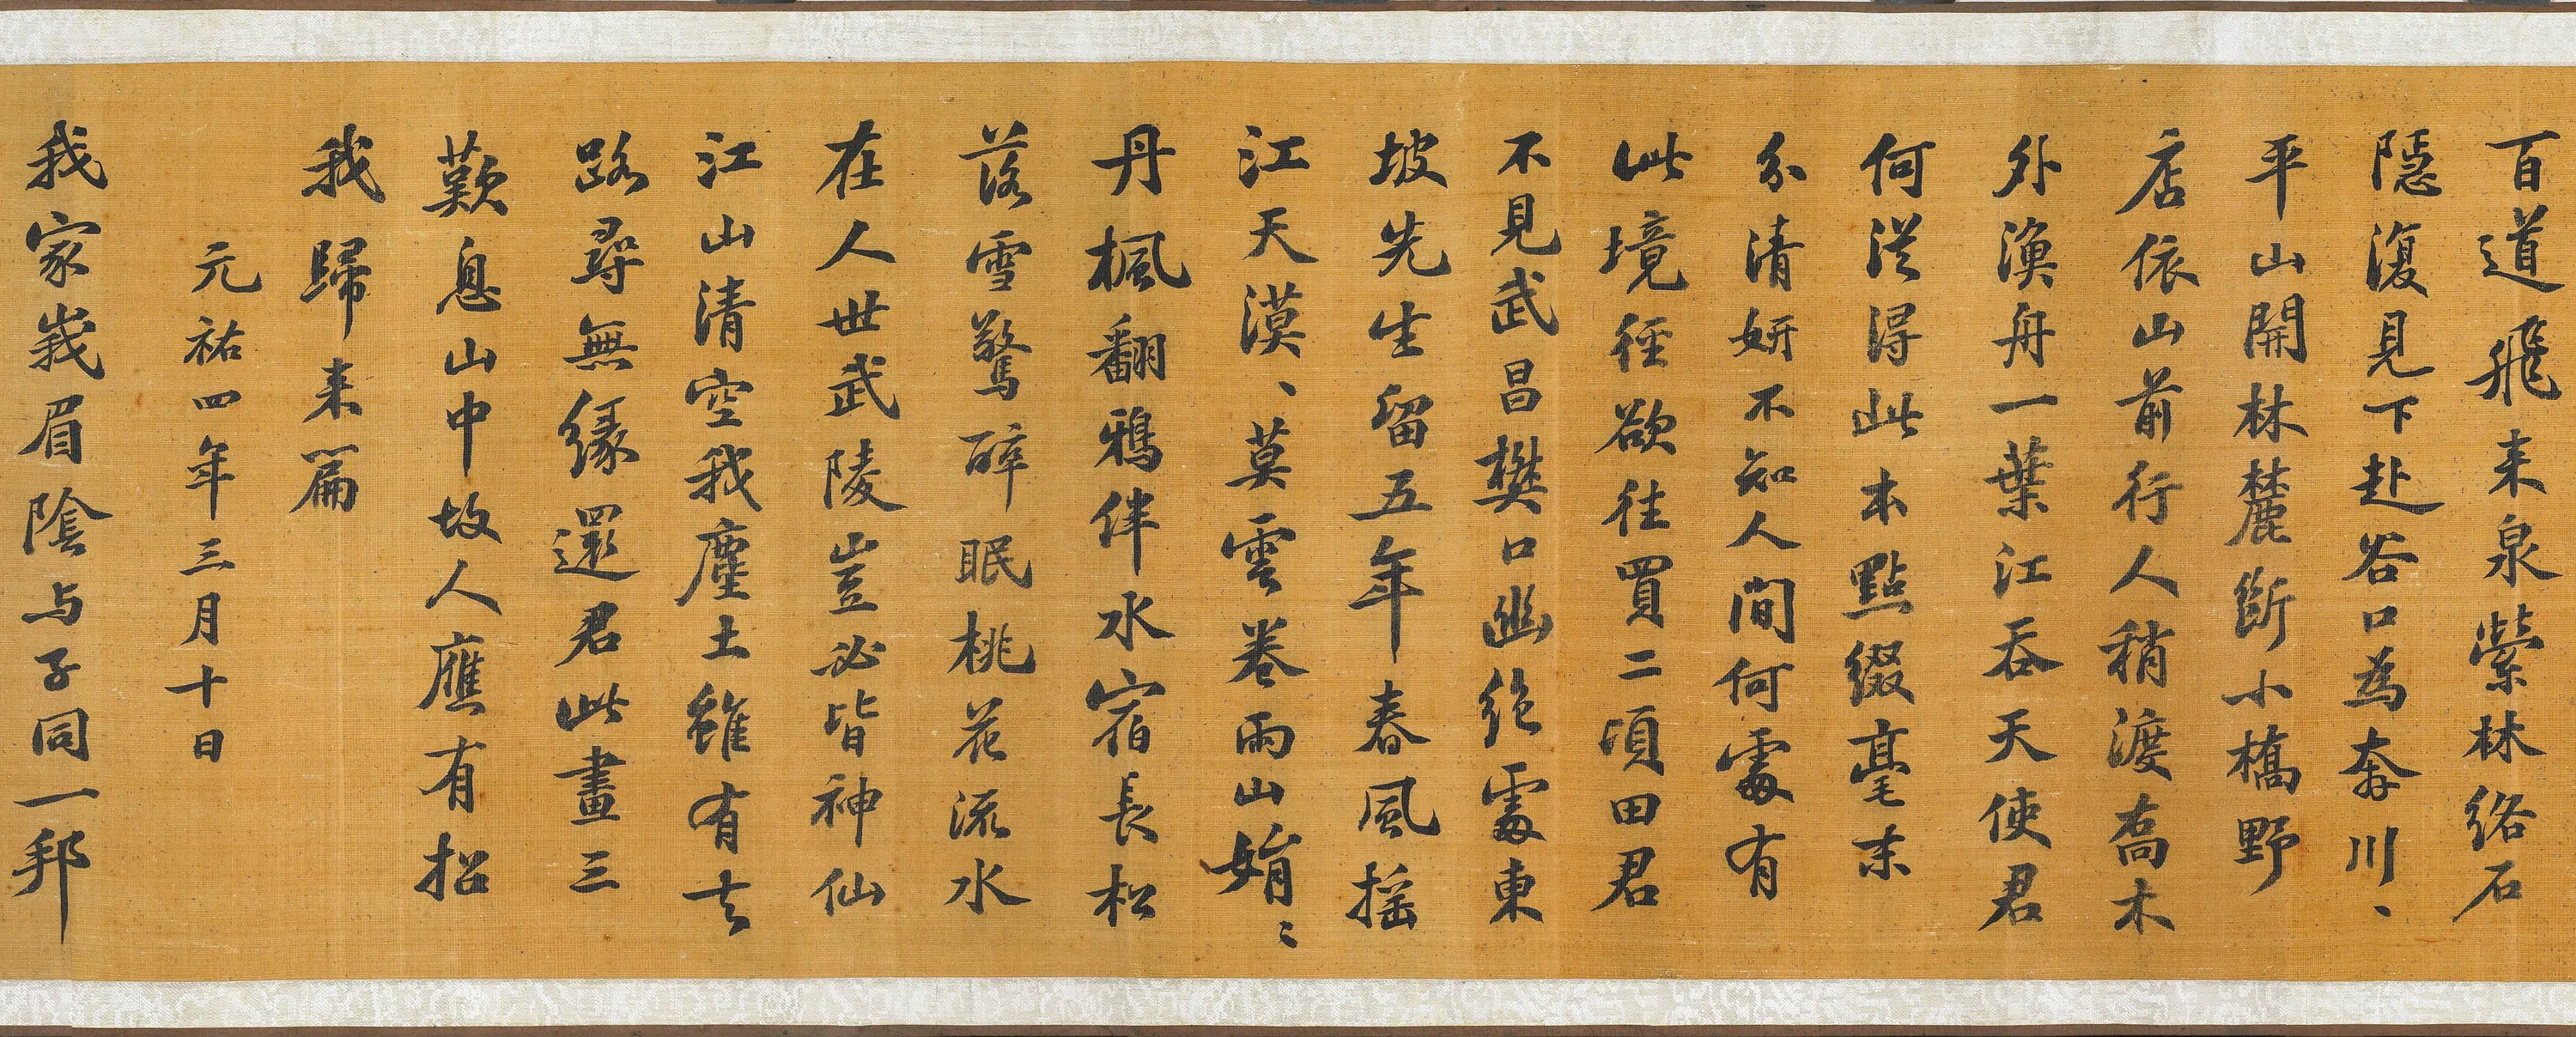 百道飛来泉縈林絡石
隱澓見下赴谷口為奔川、
平山開林麓斷小橋野
店依山前行人稍渡喬木
外漁舟一葉江吞天使君
何從得此本點綴毫末
分清妍不知人間何處有
此境徑欲往買二頃田君
不見武昌樊口幽絶處東
坡先生留五年春風揺
江天漠、莫雲卷雨山娟〻
丹楓翻鴉伴水宿長松
落雪驚醉眠桃花流水
在人世武陵豈必皆神仙
江山清空我塵土雖有去
路尋無緣還君此畫三
歎息山中故人應有招
我歸来篇
元祐四年三月十日
我家峩眉陰与子同一邦